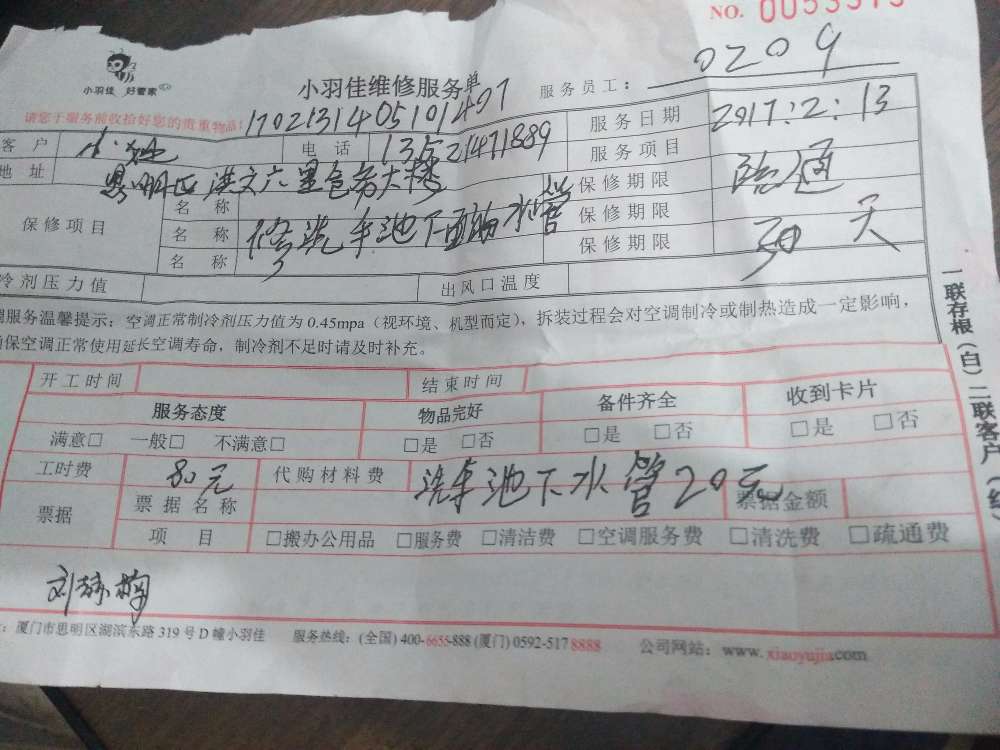 NO. 0053375
小羽佳 好管家
小羽佳维修服务单
服务员工： 0209
请您于服务前收拾好您的贵重物品！ 1702131405101407
客户 电话 13521471889 服务日期 2017:2:13
地址 思明区洪文六里 大楼 服务项目
保修项目 名称 保修期限
名称 修洗手池下面 水管 保修期限
名称 保修期限 30天
冷剂压力值 出风口温度
调服务温馨提示：空调正常制冷剂压力值为0.45mpa（视环境、机型而定），拆装过程会对空调制冷或制热造成一定影响，
确保空调正常使用延长空调寿命，制冷剂不足时请及时补充。
开工时间 结束时间
服务态度 物品完好 备件齐全 收到卡片
满意□ 一般□ 不满意□ □是 □否 □是 □否 □是 □否
工时费 80元 代购材料费 洗手池下水管20元
票据 票据名称 票据金额
项目 □搬办公用品 □服务费 □清洁费 □空调服务费 □清洗费 □疏通费
：厦门市思明区湖滨东路319号D幢小羽佳 服务热线：(全国) 400-6655-888 (厦门) 0592-517 8888 公司网站：www.xiaoyujia.com
一联存根（白）二联客户（红